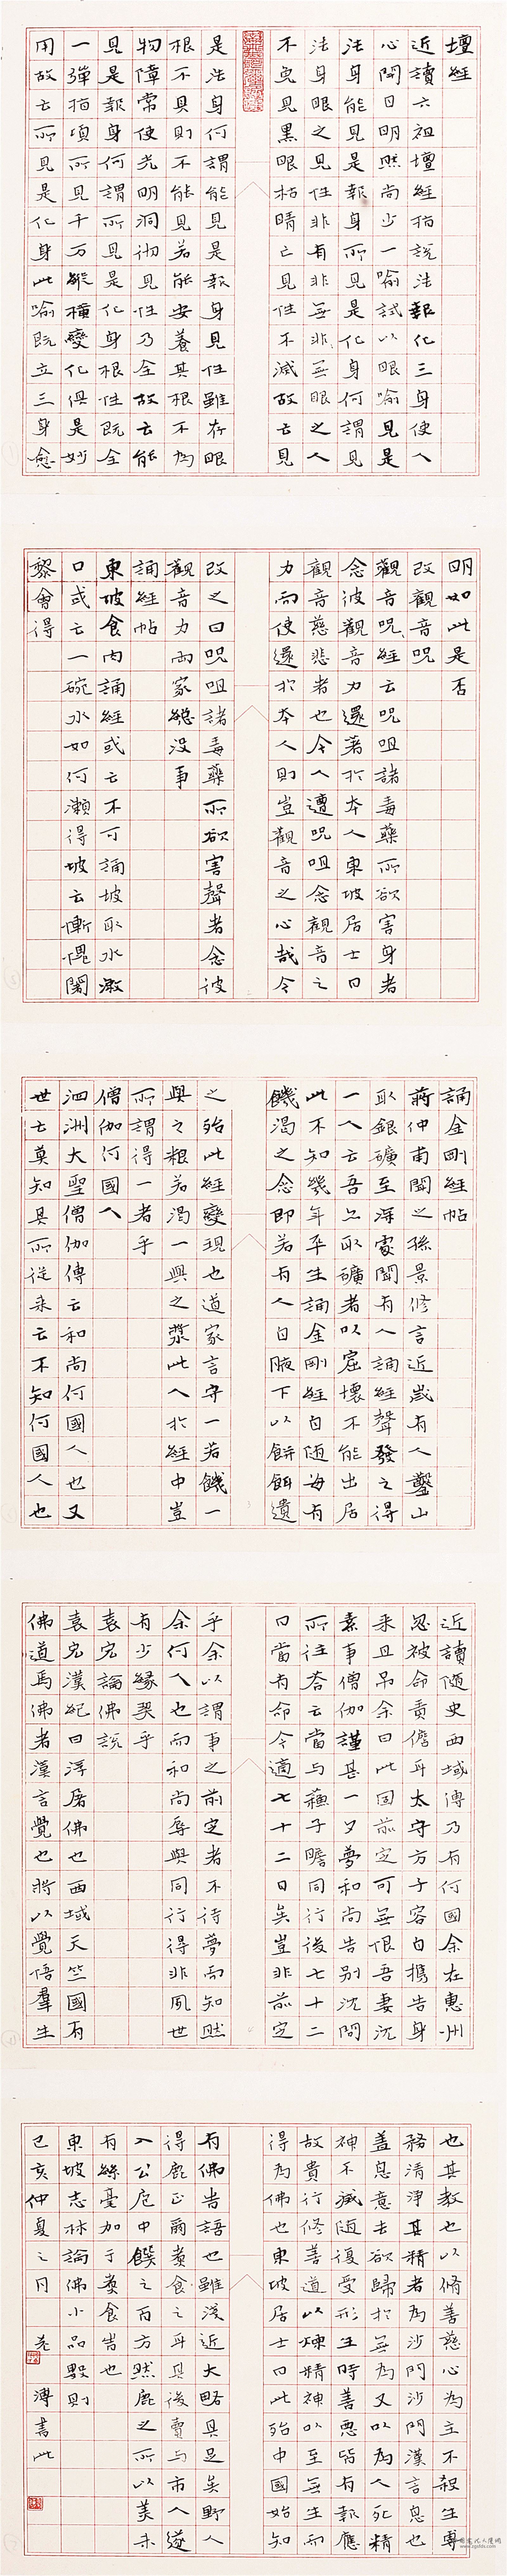 壇經
近讀六祖壇經指說法報化三身使人
心開目明然尚少一喻試以眼喻見是
法身能見是報身所見是化身何謂見
法身眼之見性非有非無非無眼之人
不免見黑眼枯睛亡見性不滅故云見
是法身何謂能見是報身見性雖存眼
根不具則不能見若能安養其根不為
物障常使光明洞徹見性乃全故云能
見是報身何謂所見是化身根性既全
一彈指頃所見千万縱橫變化俱是妙
用故云所見是化身此喻既立三身愈
明如此是否
改觀音呪
觀音呪經云呪咀諸毒藥所欲害身者
念彼觀音力還著於本人東坡居士曰
觀音慈悲者也今人遭呪咀念觀音之
力而使還於本人則豈觀音之心哉今
改之曰呪咀諸毒藥所欲害聲者念彼
觀音力兩家總沒事
誦經帖
東坡食肉誦經或云不可誦坡取水漱
口或云一碗水如何漱得坡云慚愧闍
黎會得
誦金剛經帖
蔣仲甫聞之孫景修言近歲有人鑿山
取銀礦至深處聞有人誦經聲發之得
一人云吾亦取礦者以窟壞不能出居
此不知幾年平生誦金剛經自隨每有
饑渴之念即若有人自腋下以餅餌遺
之殆此經變現也道家言守一若饑一
與之糧若渴一與之漿此人於經中豈
所謂得一者乎
僧伽何國人
泗洲大聖僧伽傳云和尚何國人也又
世云莫知其所從来云不知何國人也
近讀隨史西域傳乃有何國余在惠州
忽被命責儋耳太守方子容自攜告身
来且吊余曰此固前定可無恨吾妻沈
素事僧伽謹甚一夕夢和尚告別沈問
所往答云當与蘇子瞻同行後七十二
日當有命今適七十二日矣豈非前定
乎余以謂事之前定者不待夢而知然
余何人也而和尚辱與同行得非夙世
有少緣契乎
袁宏論佛說
袁宏漢紀曰浮屠佛也西域天竺國有
佛道焉佛者漢言覺也將以覺悟羣生
也其教也以脩善慈心為主不殺生專
務清淨其精者為沙門沙門漢言息也
蓋息意去欲歸於無為又以為人死精
神不滅随復受形生時善惡皆有報應
故貴行修善道以煉精神以至無生而
得為佛也東坡居士曰此殆中國始知
有佛旹語也雖淺近大略具足矣野人
得鹿正爾煮食之耳其後賣与市人遂
入公庖中饌之百方然鹿之所以美未
有絲毫加于煮食旹也
東坡志林論佛小品數則
己亥仲夏之月 溥書此